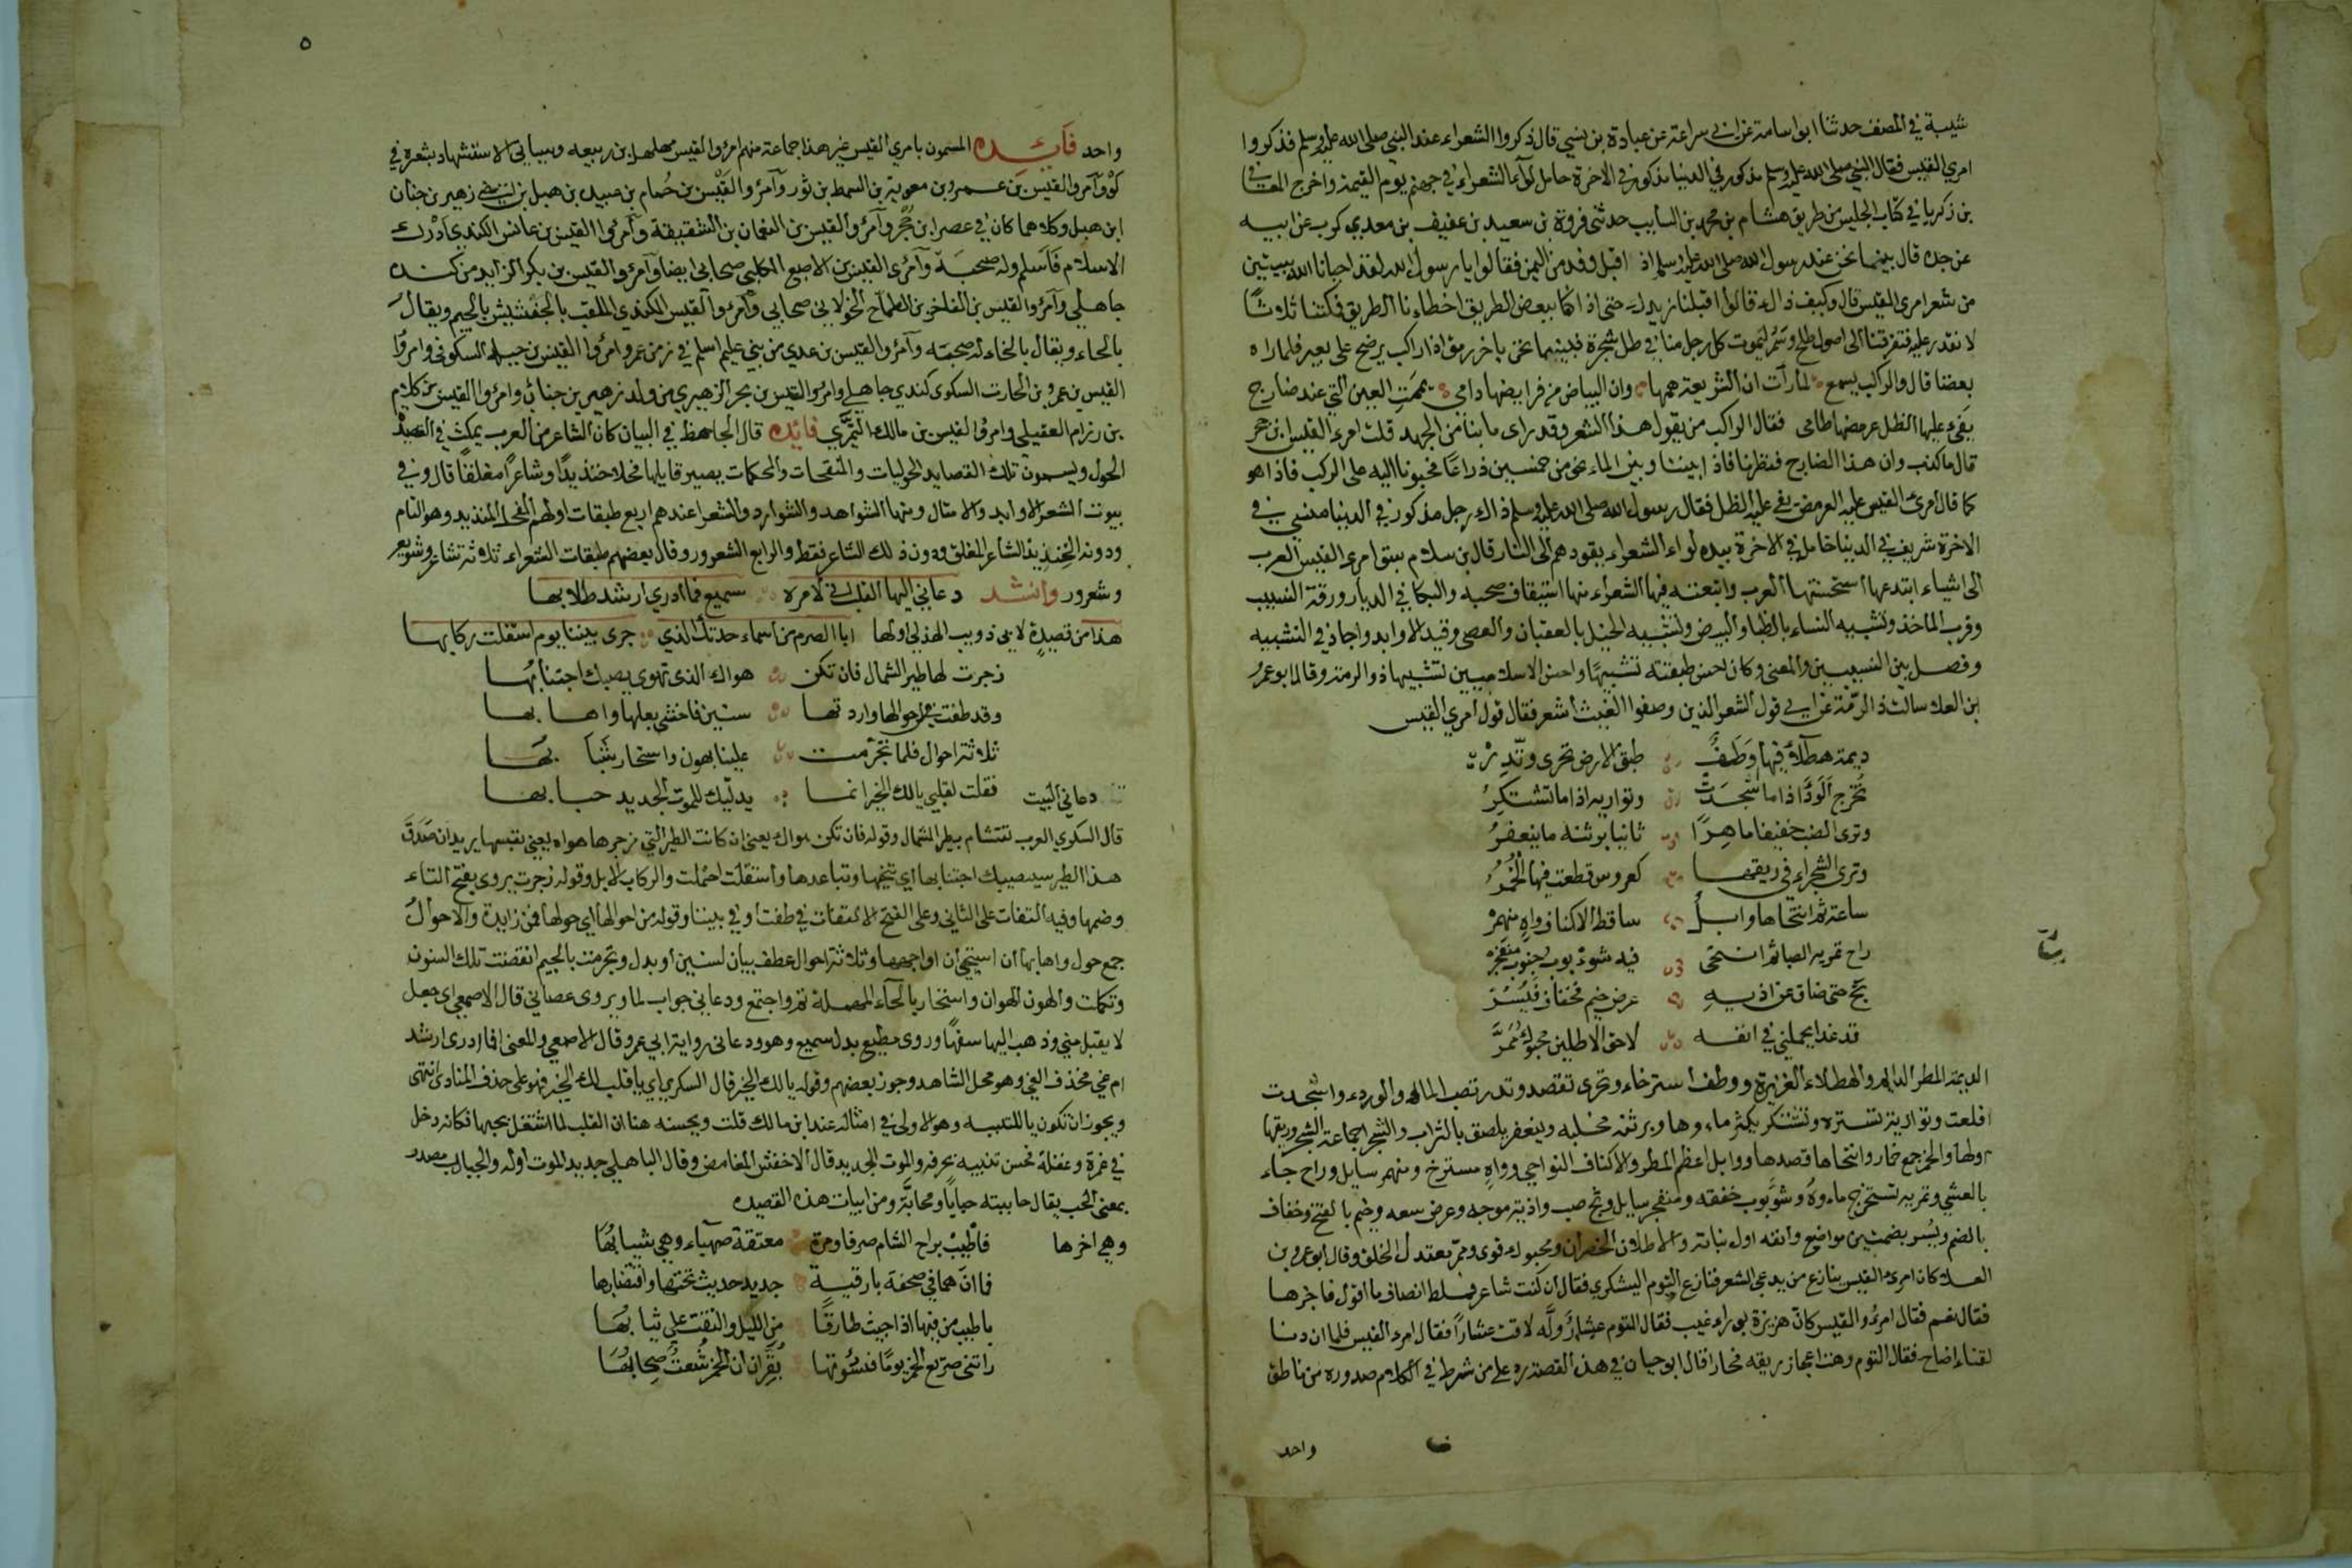 شيبة في المصنف حدثنا ابو اسامة عن ابي سراعة عن عبادة بن نسي قال ذكروا الشعراء عند النبي صلى الله عليه وسلم فذكروا
امري القيس فقال النبي صلى الله عليه وسلم مذكور في الدنيا مذكور في الاخرة حامل لوآء الشعراء في جهنم يوم القيمة واخرج المعافى
بن زكريا في كتاب الجليس من طريق هشام بن محمد بن السايب حدثني فروة بن سعيد بن عفيف بن معدي كرب عن ابيه
عن جده قال بينما نحن عند رسول الله صلى الله عليه وسلم اذ اقبل وفد من اليمن فقالوا يا رسول الله لقد احيانا الله ببيتين
من شعر امرى القيس قال وكيف ذاك قالوا اقبلنا نريدك حتى اذا كنا ببعض الطريق اخطانا الطريق فمكثنا ثلاثا
لا نقدر عليه فتفرقنا الى اصول طلح وسمر ليموت كل رجل منا في ظل شجرة فبينما نحن باخر رمق اذا راكب يوضع على بعير فلما راه
بعضنا قال والراكب يسمع لما رأت ان الشريعة همها وان البياض من فرايصها دامى تيممت العين التي عند ضارج
يفيء عليها الظل عرمضها طامى فقال الراكب من يقول هذا الشعر وقد راى ما بنا من الجهد قلت امرء القيس ابن حجر
قال ما كذب وان هذا الضارج فنظرنا فاذا بيننا وبين الماء نحو من خمسين ذراعا فحبونا اليه على الركب فاذا هو
كما قال امرئ القيس عليه العرمض يفي عليه الظل فقال رسول الله صلى الله عليه وسلم ذاك رجل مذكور في الدنيا منسي في
الاخرة شريف في الدنيا خامل في الاخرة بيده لواء الشعراء يقودهم الى النار قال بن سلام سبق امرى القيس العرب
الى اشياء ابتدعها استحسنتها العرب واتبعته فيها الشعراء منها استيقاف صحبه والبكا في الديار ورقة النسيب
وقرب الماخذ وتشبيه النساء بالظبا والبيض وتشبيه الخيل بالعقبان والعصي وقيد الاوابد واجاد في التشبيه
وفصل بين النسيب وبين المعنى وكان احسن طبقته تشبيها واحسن الاسلاميين تشبيها ذو الرمة وقال ابو عمرو
بن العلا سالت ذا الرمة عن اي قول الشعر الذين وصفوا الغيث اشعر فقال قول امري القيس
ديمة هطلاء فيها وطف طبق الارض تحرى وتدر
تخرج الود اذا ما اشجذت وتواريه اذا ما تشتكر
وترى الضب خفيفا ماهرا ثانيا برثنه ما ينعفر
وترى الشجراء في ريقها كعروس قطعت فيها الخمر
ساعة ثم انتحاها وابل ساقط الاكناف واه منهمر
راح تمريه الصبا ثم انتحى فيه شؤبوب جنوب منفجر
ثج حتى ضاق عن اذيه عرض خيم فخفاف فيسر
قد غدا يحملني في انفه لاحق الاطلين محبوك ممر
الديمة المطر الدايم والهطلاء الغزيرة ووطف استرخاء وتحرى تقصد وتدر تصب الماء والود واشجدت
اقلعت وتواريه تستره وتشتكر يكثر ماءوها وبرثنه مخلبه وينعفر يلصق بالتراب والشجراء جماعة الشجر وريقها
اولها والخمر جمع خمار وانتحاها قصدها ووابل اعظم المطر والاكناف النواحي وواه مسترخ ومنهمر سايل وراح جاء
بالعشي وتمريه تستخرج ماءوه وشؤبوب خفقه ومنفجر سايل وثج صب واذيه موجه وعرض سعه وخيم بالفتح وخفاف
بالضم ويسر بضمتين مواضع وانفه اول نباته والاطلان الخصران ومحبوك قوى وممر معتدل الخلق وقال ابو عمرو بن
العلا كان امرئ القيس ينازع من يدعي الشعر فنازع التوم اليشكري فقال ان كنت شاعر فملط انصاف ما اقول فاجزها
فقال نعم فقال امرؤ القيس كان هزيزه بوراء غيب فقال التوم عشار وله لاقت عشارا فقال امرء القيس فلما ان دنا
لقناء اضاح فقال التوم وهت اعجاز ريقه فحارا قال ابو حيان في هذه القصة رد على من شرط في الكلام صدوره من ناطق
واحد
٥
واحد فائده المسمون بامري القيس غير هذا جماعة منهم امرؤ القيس مهلهل بن ربيعه وسياتى الاستشهاد بشعره في
وآمرؤ القيس بن عمرو بن معوية بن السمط بن ثور وآمرؤ القيس بن حمام بن عبيد بن هبل بن اخي زهير بن جناب
ابن هبل وكلاهما كان في عصر ابن حجر وآمرؤ القيس بن النعمان بن الشقيقة وآمرؤا القيس بن عانس الكندي ادرك
الاسلام فاسلم وله صحبة وآمرئ القيس بن الاصبع الكلبي صحابى ايضا وآمرؤ القيس بن بكر الزايد من كنده
جاهلي وآمرؤ القيس بن الفاخر بن الطماح الخولاني صحابي وآمرؤا القيس الكندي الملقب بالجفشيش بالجيم ويقال
بالحاء ويقال بالخاء له صحبة وآمرؤ القيس بن عدي من بني عليم اسلم في زمن عمر وامرؤا القيس بن جبلة السكونى وامرؤا
القيس بن عمرو بن الحارث السكوى كندي جاهلي وامرؤ القيس بن بحر الزهيري من ولد زهير بن جناب وامرؤا القيس بن كلام
بن رزام العقيلي وامرؤا القيس بن مالك النميري فائده قال الجاحظ في البيان كان الشاعر من العرب يمكث في القصيدة
الحول ويسمون تلك القصايد الحوليات والمنقحات والمحكمات يصير قايلها فحلا خنذيدا وشاعرا مفلقا قال وفي
بيوت الشعر الاوابد والامثال ومنها الشواهد والشوارد والشعرا عندهم اربع طبقات اولهم الفحل الخنذيد وهو التام
ودونه الخنذيذ الشاعر المفلق ودون ذلك الشاعر فقط والرابع الشعرور وقال بعضهم طبقات الشعراء ثلاثة شاعر وشويعر
وشعرور وانشد دعاني اليها القلب اني لامره سميع فما ادري ارشد طلابها
هذا من قصيدة لابى ذويب الهذلي اولها ابا الصرم من اسماء حدثك الذي جرى بيننا يوم استقلت ركابها
زجرت لها طير الشمال فان تكن هواك الذى تهوى يصبك اجتنابها
وقد طفت من احوالها واردتها سنين فاخشى بعلها واهابها
ثلاثة احوال فلما تجرمت علينا بهون واستحار شبابها
دعاني البيت فقلت لقلبي يا لك الخير انما يدليك للموت الجديد حبابها
قال السكري العرب تتشام بطير الشمال وقوله فان تكن هواك يعنى ان كانت الطير التي زجرها هواه يعنى نفسها يريد ان صدق
هذا الطير سيصيبك اجتنابها اي تنحيها وتباعدها واستقلت احتملت والركاب الابل وقوله زجرت يروى بفتح التاء
وضمها وفيه التفات على الثاني وعلى الفتح الالتفات في طفت او في بيننا وقوله من احوالها اي حولها فمن زايدة والاحوال
جمع حول واهابها ان استحي ان اواجهها وثلاثة احوال عطف بيان لسنين او بدل وتجرمت بالجيم انقضت تلك السنون
وتكملت والهون الهوان واستحار بالحاء المهملة تم واجتمع ودعانى جواب لما ويروى عصاني قال الاصمعي اى جعل
لا يقبل مني وذهب اليها سفها وروى مطيع بدل سميع وهو ودعانى رواية ابي عمرو قال الاصمعي والمعنى فما ادرى ارشد
ام غي فحذف الغي وهو محل الشاهد وجوز بعضهم وقوله يا لك الخير قال السكري اي يا قلب لك الخير فهو على حذف المنادى انتهى
ويجوز ان تكون يا للتنبيه وهو الاولى في امثاله عند ابن مالك قلت ويحسنه هنا ان القلب لما اشتغل بحبها فكانه دخل
في غمرة وغفلة فحسن تنبيهه بحرفه والموت الجديد قال الاخفش المغامض وقال الباهلي جديد الموت اوله والحباب مصدر
بمعنى الحب يقال حاببته حبابا ومحابة ومن ابيات هذه القصيده
وهي اخرها فاطيب براح الشام صرفا وهذه معتقة صهباء وهي شيابها
فما ان هما في صحفة بارقية جديد حديث نحتها واقتضابها
باطيب من فيها اذا جيت طارقا من الليل والتفت علي ثيابها
راتنى صريع الخمر يوما فسؤتها بقران ان الخمر شعث صحابها